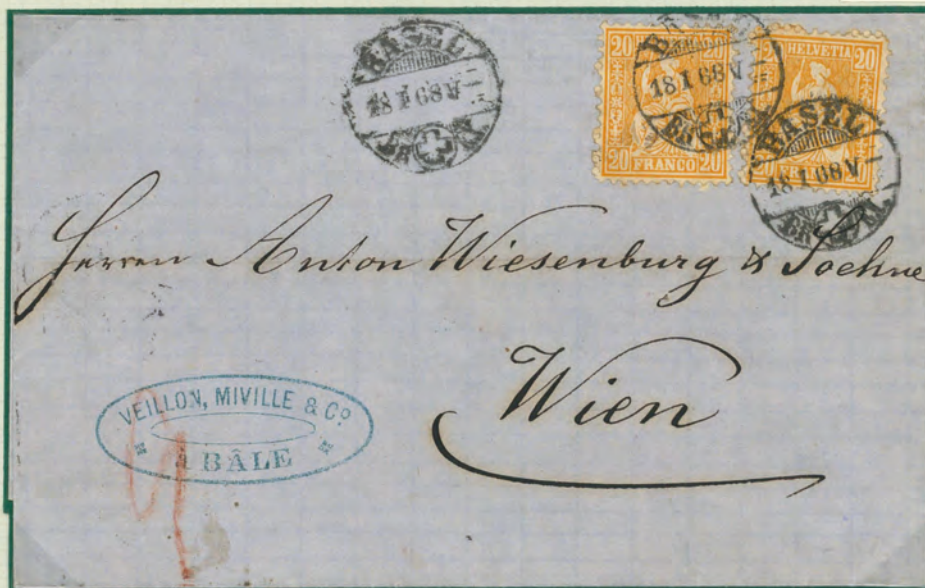 BASEL
18 I 68 V
20 20
20 FRANCO 20
BASEL
18 I 68 V
HELVETIA 20
BASEL
18 I 68 V
Herren Anton Wiesenburg & Soehne
Wien
VEILLON, MIVILLE & Cº
à BÂLE